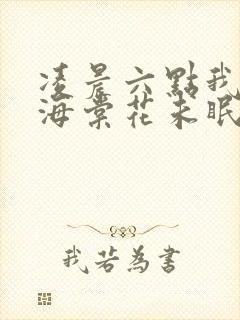 凌晨六點我
海棠花未眠
我若為書